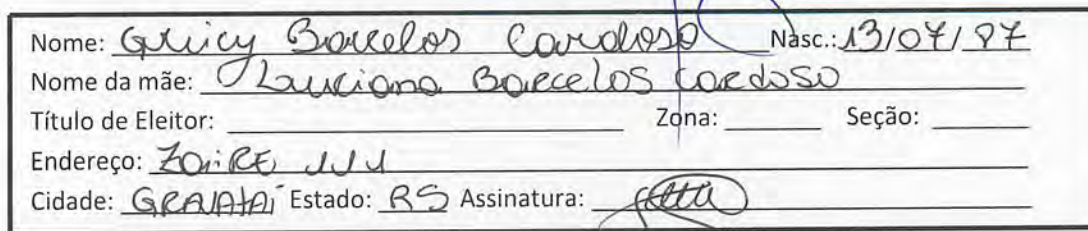 Nome: Greicy Barcelos Cardoso Nasc.: 13/07/97
Nome da mãe: Luciana Barcelos Cardoso
Título de Eleitor: Zona: Seção:
Endereço: ZAiRE 111
Cidade: GRAVATAÍ Estado: RS Assinatura: